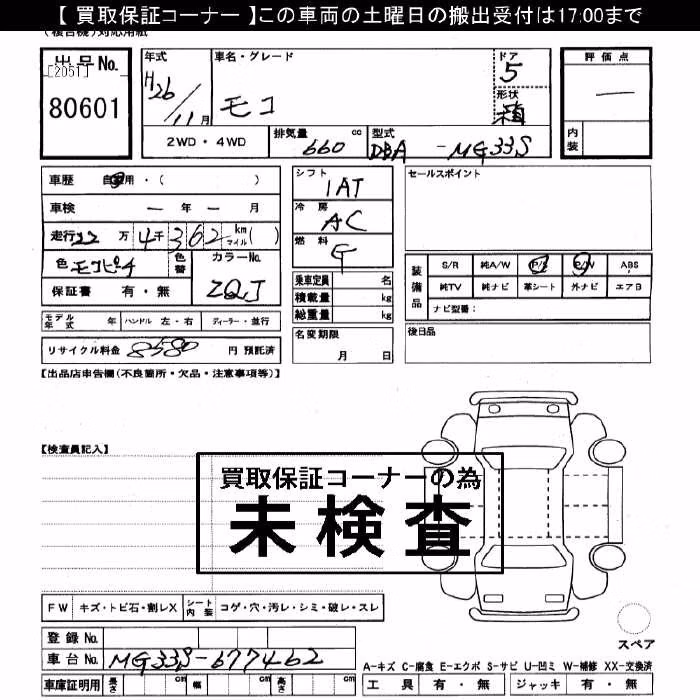 【 買取保証コーナー 】この車両の土曜日の搬出受付は17:00まで
出品No.
[2051]
80601
年式
H26/11月
車名・グレード
モコ
ドア
5
形状
箱
評価点
一
内装
2WD・4WD
排気量 660 cc
型式 DBA-MG33S
車歴 自家用・( )
車検 ー 年 ー 月
走行 22万4千362 km マイル( )
色 モコピーチ
色替
カラーNo.
ZQJ
保証書 有・無
モデル年式 年 ハンドル 左・右 ディーラー・並行
リサイクル料金 8580 円 預託済
シフト
1AT
冷房
AC
燃料
G
乗車定員 名
積載量 kg
総重量 kg
名変期限
月 日
セールスポイント
装備品
S/R 純A/W P/S P/W ABS
純TV 純ナビ 革シート 外ナビ エアB
ナビ型番:
後日品
【出品店申告欄(不良箇所・欠品・注意事項等)】
【検査員記入】
買取保証コーナーの為
未検査
FW キズ・トビ石・割レX シート内装 コゲ・穴・汚レ・シミ・破レ・スレ
スペア
登録No.
車台No. MG33S-677462
車庫証明用 長さ cm 幅 cm 高さ cm
A-キズ C-腐食 E-エクボ S-サビ U-凹ミ W-補修 XX-交換済
工具 有・無 ジャッキ 有・無